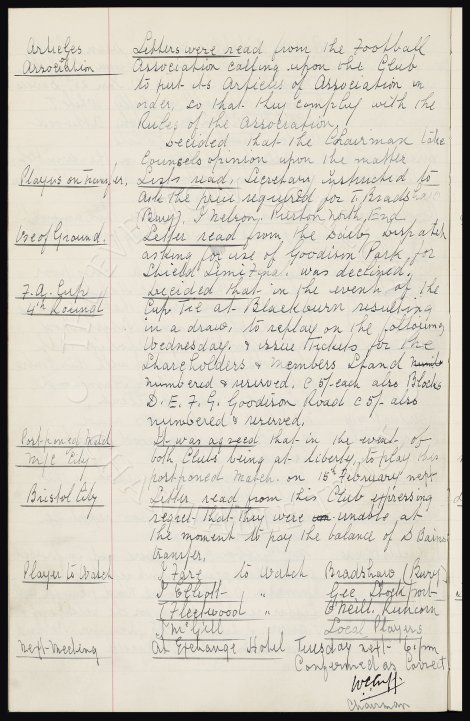 Articles Letters were read from the Football
Association Association calling upon the Club
to put its Articles of Association in
order, so that they comply with the
Rules of the Association,
Decided that the Chairman take
Counsels opinion upon the matter
Players on transfer, Lists read, Secretary instructed to
ask the price required for T. Bradshaw
(Bury), J Nelson, Preston North End
Use of Ground. Letter read from the Daily Dispatch
asking for use of Goodison Park, for
Shield Semi Final. was declined.
F.A. Cup Decided that in the event of the
4th Round Cup Tie at Blackburn resulting
in a draw, to replay on the following
Wednesday, & issue Tickets for the
Shareholders & Members Stand
numbered & reserved. @ 5/- each also Blocks
D. E. F. G. Goodison Road @ 5/- also
numbered & reserved.
Postponed Match It was agreed that in the event, of
M/c City both Clubs being at liberty, to play this
postponed match. on 15th February next
Bristol City Letter read from this Club expressing
regret that they were unable at
the moment to pay the balance of D Bain's
transfer.
Player to Watch J Fare to Watch Bradshaw (Bury)
J Elliott " Gee Stockport
J Fleetwood " O'Neill. Runcorn
J McGill Local Players
Next Meeting At Exchange Hotel Tuesday next 6. pm
Confirmed as Correct
WCCuff.
Chairman